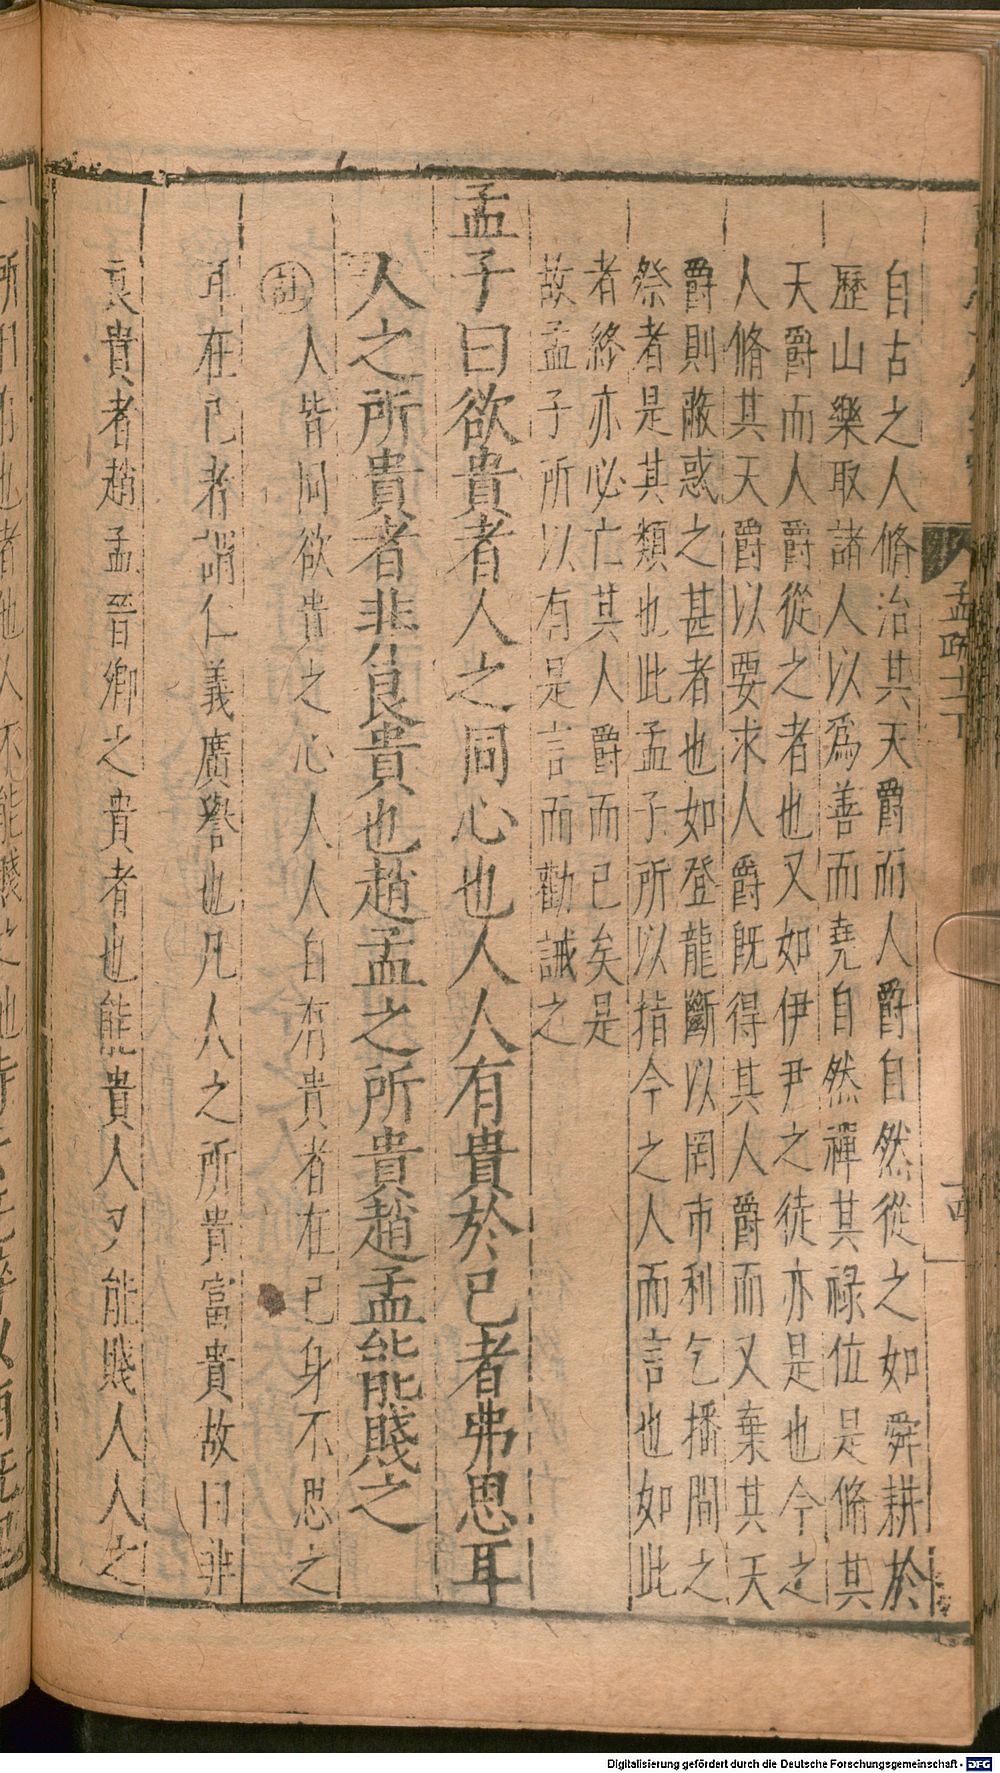 自古之人脩治其天爵而人爵自然從之如舜耕於
歷山樂取諸人以爲善而堯自然禪其祿位是脩其
天爵而人爵從之者也又如伊尹之徒亦是也今之
人脩其天爵以要求人爵旣得其人爵而又棄其天
爵則蔽惑之甚者也如登龍斷以罔市利乞播間之
祭者是其類也此孟子所以指今之人而言也如此
者終亦必亡其人爵而已矣是
故孟子所以有是言而勸誡之
孟子曰欲貴者人之同心也人人有貴於已者弗思耳
人之所貴者非良貴也趙孟之所貴趙孟能賤之
人皆同欲貴之心人人自有貴者在已身不思之
耳在已者謂仁義廣譽也凡人之所貴富貴故曰非
良貴者趙孟晉卿之貴者也能貴人又能賤人人之
孟疏十一下
十四
Digitalisierung gefördert durch die Deutsche Forschungsgemeinschaft - DFG